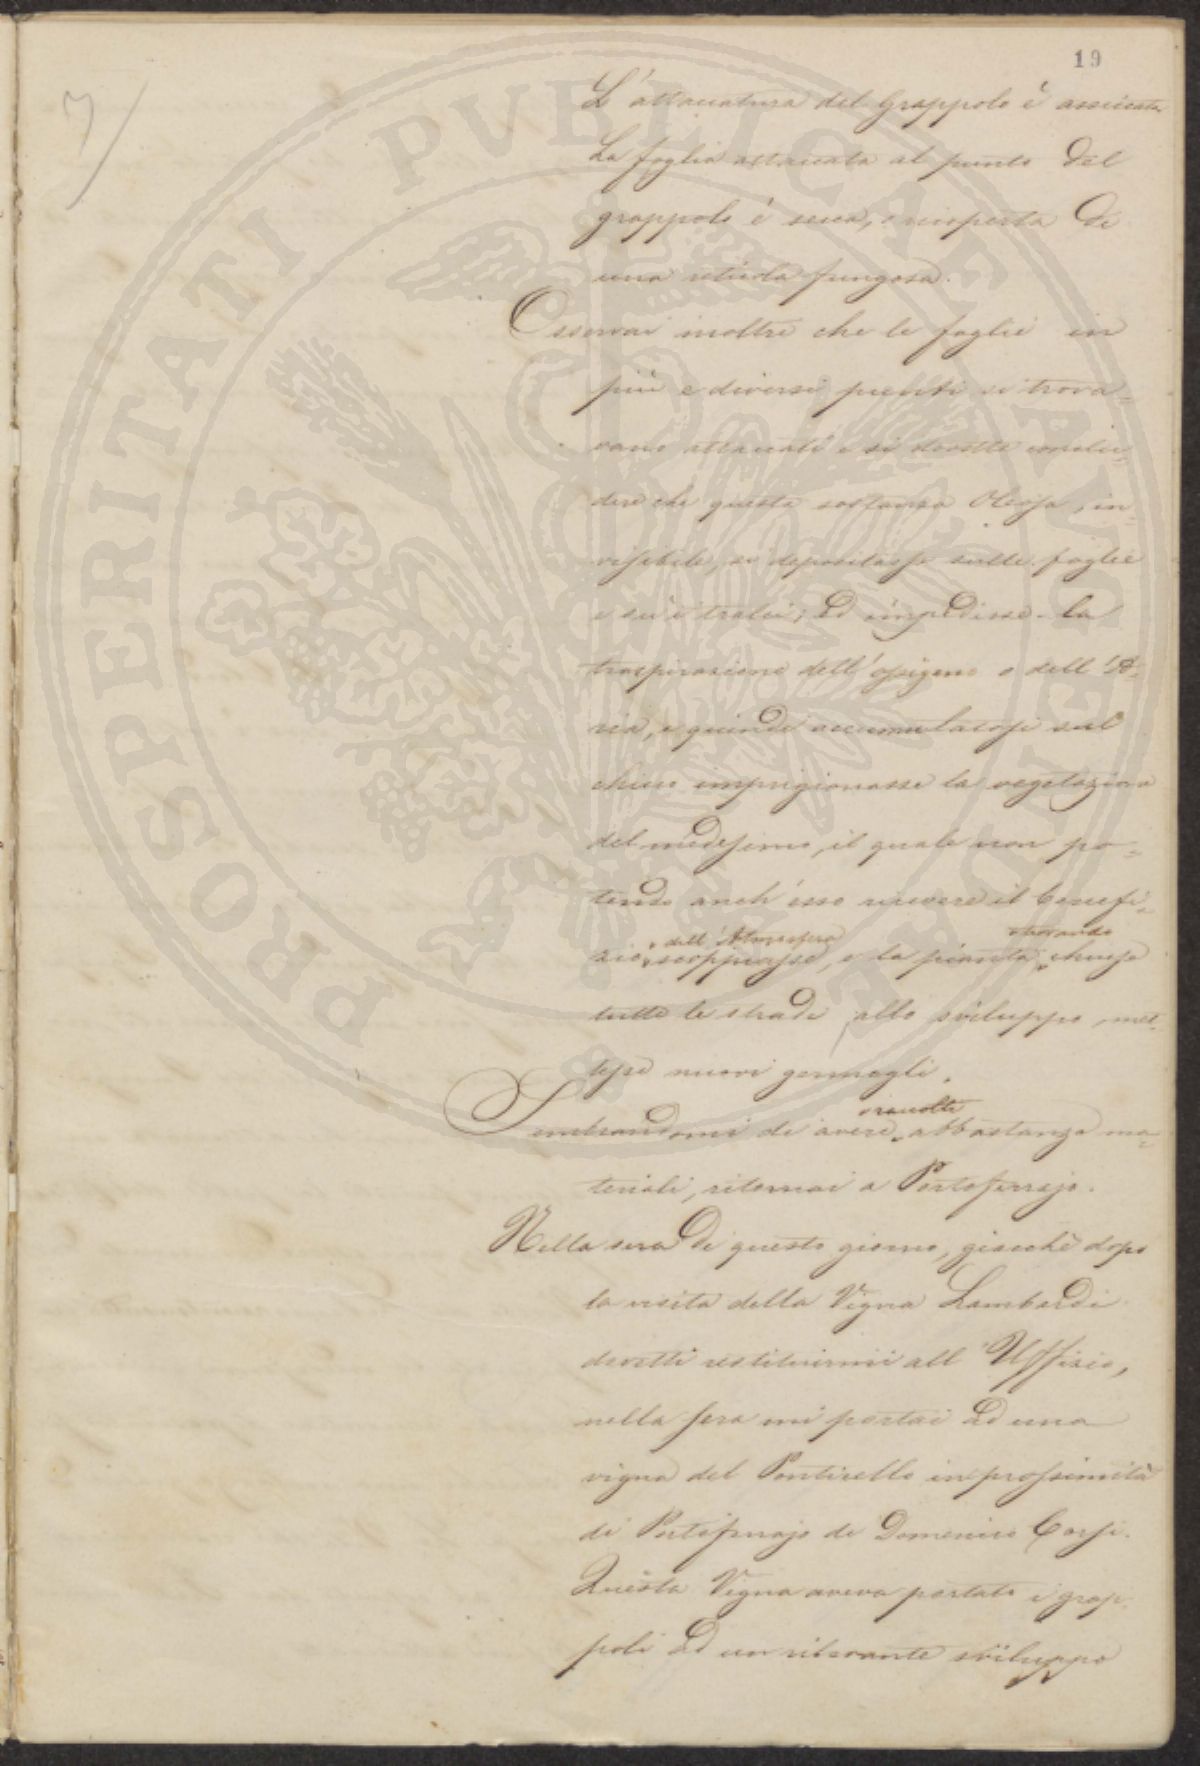 19
7/
L'attaccatura del Grappolo é assiccata
La foglia attaccata al punto del
grappolo é secca, e ricoperta di
una reticola fungosa.
Osservai inoltre che le foglie in
più e diversi punti si trova-
vano attaccati e si dovette conclu-
dere che questa sostanza Oleosa, in-
visibile, si depositasse sulle foglie
e su i tralci; ed impedisse la
traspirazione dell'ossigeno o dell'A-
ria, e quindi accumulatosi sul
chicco imprigionasse la vegetazione
del medesimo, il quale non po-
tendo anch'esso ricevere il benefi-
dell'Atmosfera trovando
zio, scoppiasse, e la pianta chiuse
tutte le strade allo sviluppo, met-
tesse nuovi germogli.
raccolti
Sembrandomi di avere abbastanza ma-
teriali, ritornai a Portoferrajo.
Nella sera di questo giorno, giacchè dopo
la visita della Vigna Lambardi
dovetti restituirmi all'Uffizio,
nella sera mi portai ad una
vigna del Ponticello in prossimità
di Portoferrajo di Domenico Corsi.
Questa Vigna aveva portato i grap-
poli ad un rilevante sviluppo
PROSPERITATI PUBLICAE AUGENDAE